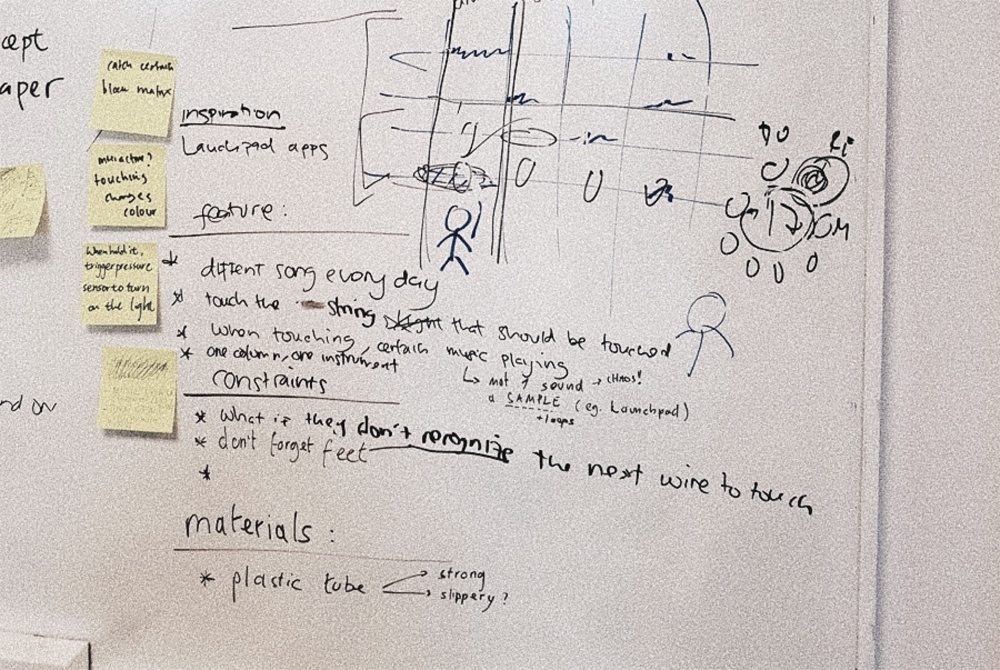 cept
aper
catch certain
block
touching
changes
colour
When hold it,
trigger pressure
sensor to turn
on the light
nd on
inspiration
Launchpad apps
feature:
* different song every day
* touch the string that should be touched
* when touching, certain music playing
↳ not 1 sound → CHAOS!
a SAMPLE (eg. Launchpad)
+loops
* one column, one instrument
constraints
* what if they don't recognize the next wire to touch
* don't forget feet
*
materials:
* plastic tube
→ strong
→ slippery?